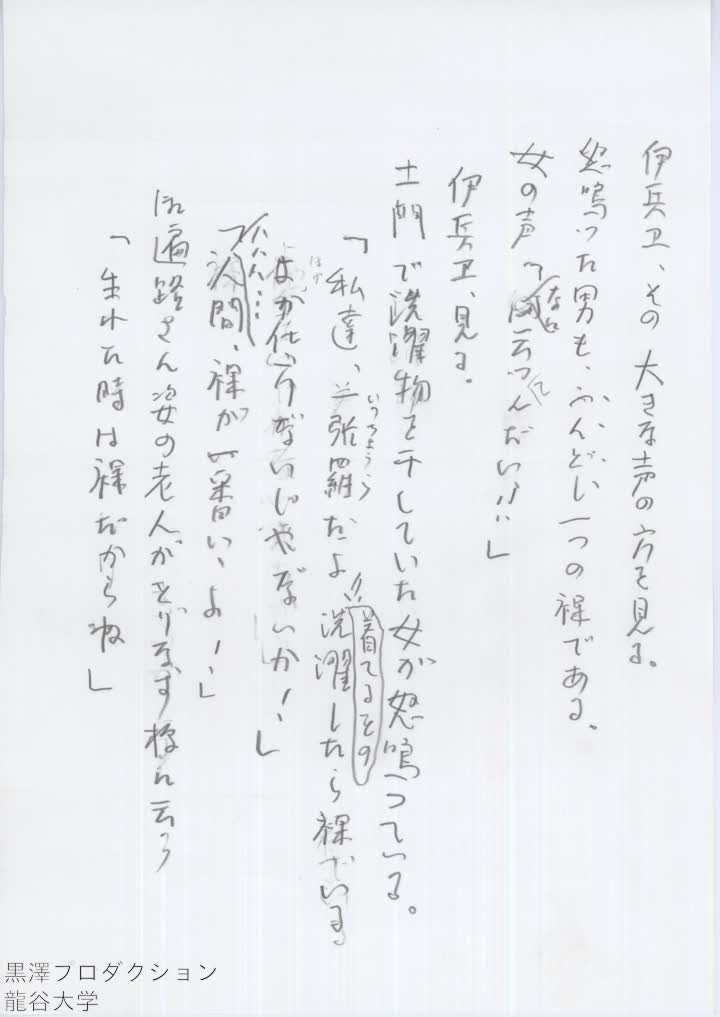 伊兵卫、その大きな声の方を見る。
怒鳴った男も、ふんどし一つの裸である。
女の声「なに云ってんだい!!」
伊兵卫、見る。
土間で洗濯物を干していた女が怒鳴っている。
「私達、一張羅だよ!!着てるもの洗濯したら裸でいる
いっちょうら
ほか仕方がないじゃないか!」
ほか
「人間、裸が一番いゝよ!」
お遍路さん姿の老人がとりなす様に云う
「生れた時は裸だからね」
黒澤プロダクション
龍谷大学